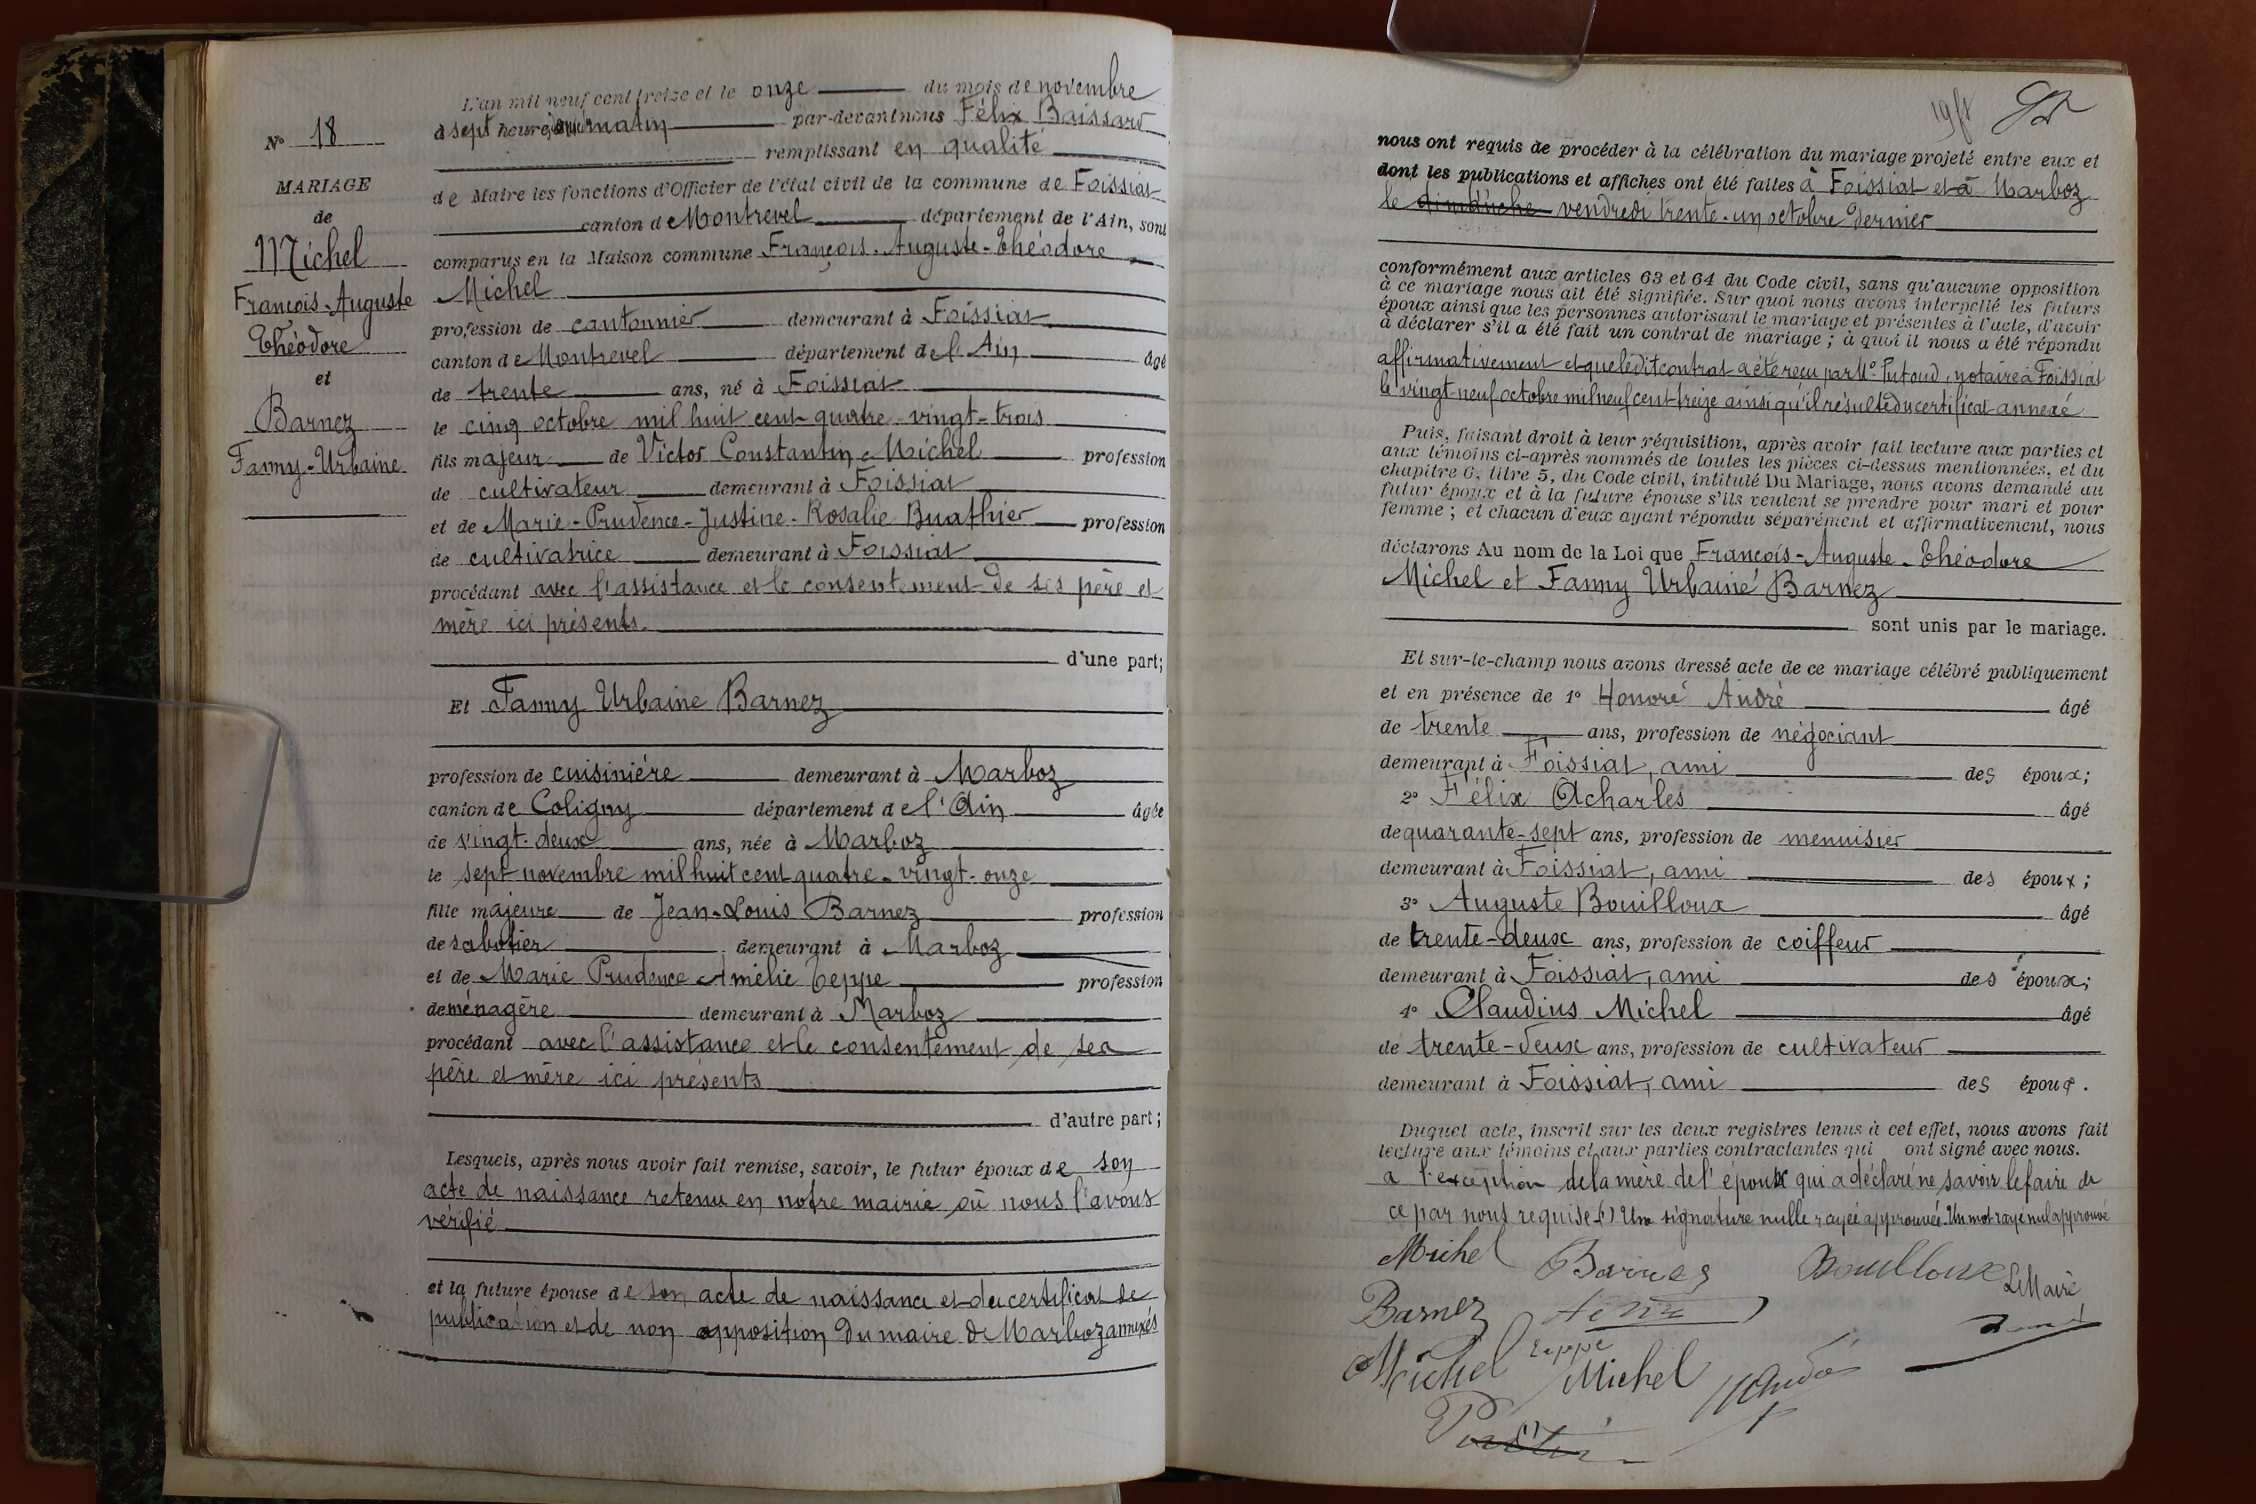 N° 18
MARIAGE
de
Michel
François-Auguste
Théodore
et
Barnez
Fanny-Urbaine
L'an mil neuf cent treize et le onze du mois de novembre
à sept heures du matin par-devant nous Félix Baissard
remplissant en qualité
de Maire les fonctions d'Officier de l'état civil de la commune de Foissiat
canton de Montrevel département de l'Ain, sont
comparus en la Maison commune François-Auguste-Théodore
Michel
profession de cantonnier demeurant à Foissiat
canton de Montrevel département de l'Ain âgé
de trente ans, né à Foissiat
le cinq octobre mil huit cent quatre-vingt-trois
fils majeur de Victor Constantin Michel profession
de cultivateur demeurant à Foissiat
et de Marie-Prudence-Justine-Rosalie Buathier profession
de cultivatrice demeurant à Foissiat
procédant avec l'assistance et le consentement de ses père et
mère ici présents.
d'une part;
Et Fanny Urbaine Barnez
profession de cuisinière demeurant à Marboz
canton de Coligny département de l'Ain âgée
de vingt-deux ans, née à Marboz
le sept novembre mil huit cent quatre-vingt-onze
fille majeure de Jean-Louis Barnez profession
de sabotier demeurant à Marboz
et de Marie Prudence Amélie Teppe profession
de ménagère demeurant à Marboz
procédant avec l'assistance et le consentement de ses
père et mère ici présents
d'autre part;
Lesquels, après nous avoir fait remise, savoir, le futur époux de son
acte de naissance retenu en notre mairie où nous l'avons
vérifié
et la future épouse de son acte de naissance et du certificat de
publication et de non opposition du maire de Marboz annexés
nous ont requis de procéder à la célébration du mariage projeté entre eux et
dont les publications et affiches ont été faites à Foissiat et à Marboz
le dimanche vendredi trente-un octobre dernier
conformément aux articles 63 et 64 du Code civil, sans qu'aucune opposition
à ce mariage nous ait été signifiée. Sur quoi nous avons interpellé les futurs
époux ainsi que les personnes autorisant le mariage et présentes à l'acte, d'avoir
à déclarer s'il a été fait un contrat de mariage; à quoi il nous a été répondu
affirmativement et que ledit contrat a été reçu par Me Putoud, notaire à Foissiat
le vingt-neuf octobre mil neuf cent treize ainsi qu'il résulte du certificat annexé
Puis, faisant droit à leur réquisition, après avoir fait lecture aux parties et
aux témoins ci-après nommés de toutes les pièces ci-dessus mentionnées, et du
chapitre 6, titre 5, du Code civil, intitulé Du Mariage, nous avons demandé au
futur époux et à la future épouse s'ils veulent se prendre pour mari et pour
femme; et chacun d'eux ayant répondu séparément et affirmativement, nous
déclarons Au nom de la Loi que François-Auguste-Théodore
Michel et Fanny Urbaine Barnez
sont unis par le mariage.
Et sur-le-champ nous avons dressé acte de ce mariage célébré publiquement
et en présence de 1° Honoré André âgé
de trente ans, profession de négociant
demeurant à Foissiat, ami des époux;
2° Félix Acharles âgé
de quarante-sept ans, profession de menuisier
demeurant à Foissiat, ami des époux;
3° Auguste Bouilloux âgé
de trente-deux ans, profession de coiffeur
demeurant à Foissiat, ami des époux;
4° Claudius Michel âgé
de trente-deux ans, profession de cultivateur
demeurant à Foissiat, ami des époux.
Duquel acte, inscrit sur les deux registres tenus à cet effet, nous avons fait
lecture aux témoins et aux parties contractantes qui ont signé avec nous.
a l'exception de la mère de l'époux qui a déclaré ne savoir le faire de
ce par nous requise (1) Une signature nulle rayée approuvée. Un mot rayé nul approuvé
Michel Barnez Bouilloux
Le Maire
Barnez
Teppe
Michel Michel